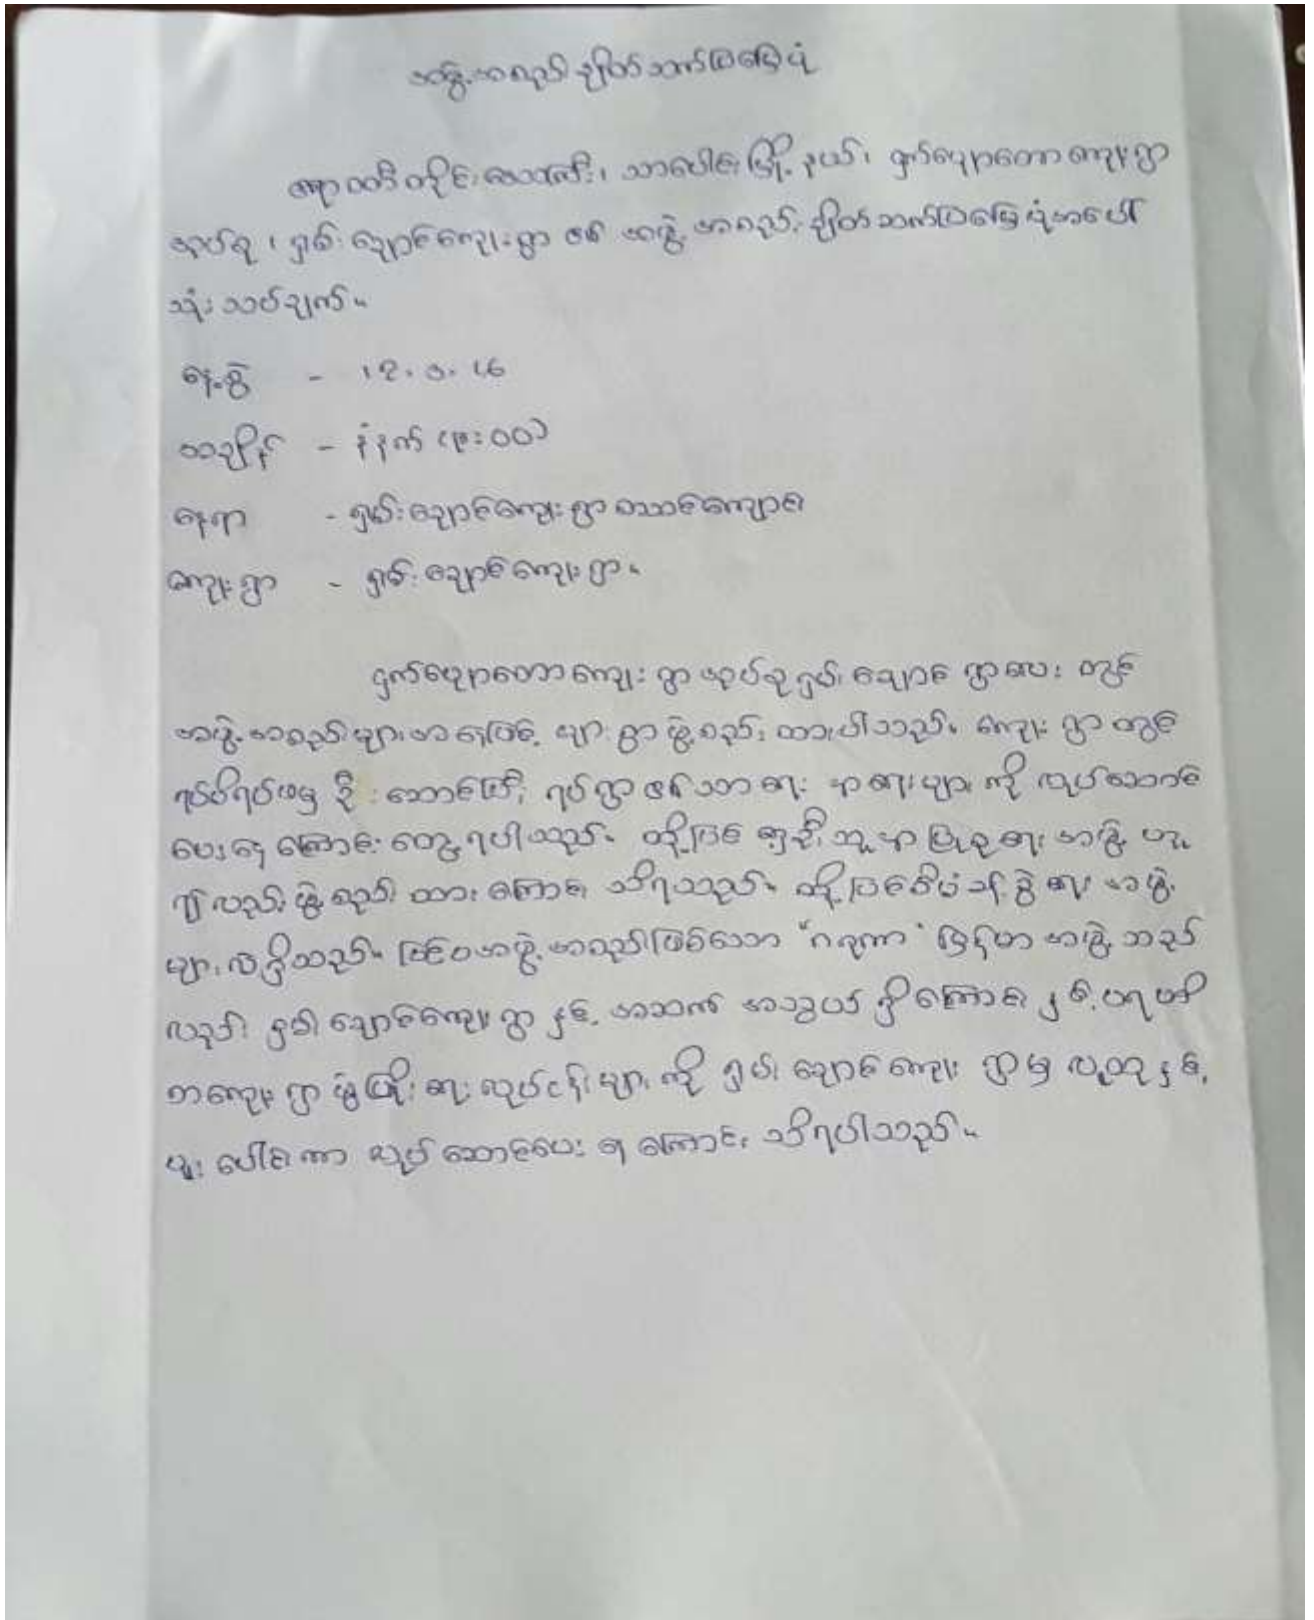 အဖွဲ့အစည်းချိတ်ဆက်ပြမြေပုံ
ဧရာဝတီတိုင်းဒေသကြီး၊ သာပေါင်းမြို့နယ်၊ ငှက်ပျောတောကျေးရွာ
အုပ်စု၊ ရှမ်းချောင်ကျေးရွာ ၏ အဖွဲ့အစည်းချိတ်ဆက်ပြမြေပုံအပေါ်
သုံးသပ်ချက်။
နေ့စွဲ - ၊၂.၁.၊၆
အချိန် - နံနက် (၉း၀၀)
နေရာ - ရှမ်းချောင်ကျေးရွာ စာသင်ကျောင်း
ကျေးရွာ - ရှမ်းချောင်ကျေးရွာ။
ငှက်ပျောတောကျေးရွာအုပ်စု ရှမ်းချောင် ရွာလေး တွင်
အဖွဲ့အစည်းများအနေဖြင့် များစွာဖွဲ့စည်းထားပါသည်။ ကျေးရွာတွင်
ရပ်မိရပ်ဖမှ ဦးဆောင်ပြီး ရပ်ရွာ၏သာရေး နာရေးများကို လုပ်ဆောင်
ပေးနေကြောင်း တွေ့ရပါသည်။ ထို့ပြင် စာကြည့် အဖွဲ့
လည်းဖွဲ့စည်းထားကြောင်း သိရသည်။ ထို့ပြင်စီမံခန့်ခွဲရေးအဖွဲ့
များလဲရှိသည်။ ပြင်ပအဖွဲ့အစည်းဖြစ်သော "ဂရုဏာ" မြန်မာအဖွဲ့သည်
လည်း ရှမ်းချောင်ကျေးရွာနှင့် အဆက်အသွယ်ရှိကြောင်းနှင့်
ကျေးရွာဖွံ့ဖြိုးရေးလုပ်ငန်းများကို ရှမ်းချောင်ကျေးရွာမှ လူထုနှင့်
ပူးပေါင်းကာ လုပ်ဆောင်ပေးနေကြောင်း သိရပါသည်။